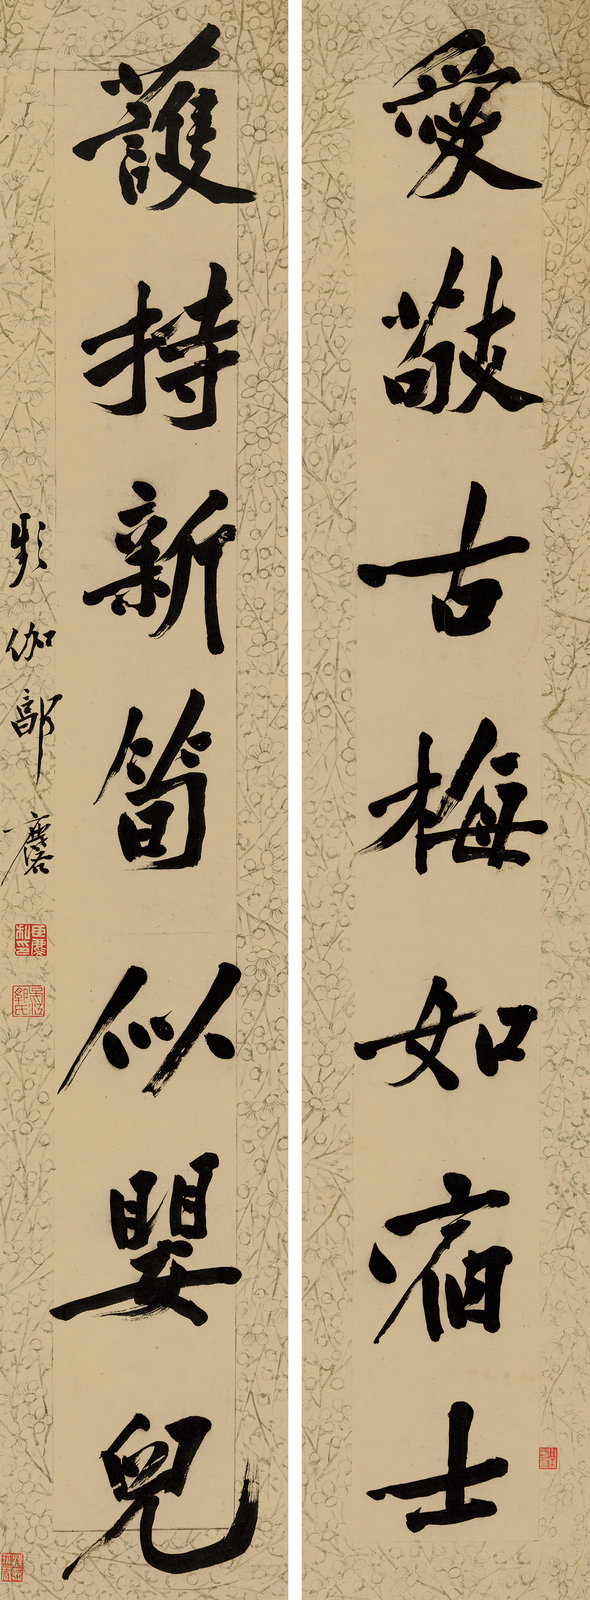 愛敬古梅如宿士
護持新筍似嬰兒
頻伽郭麐